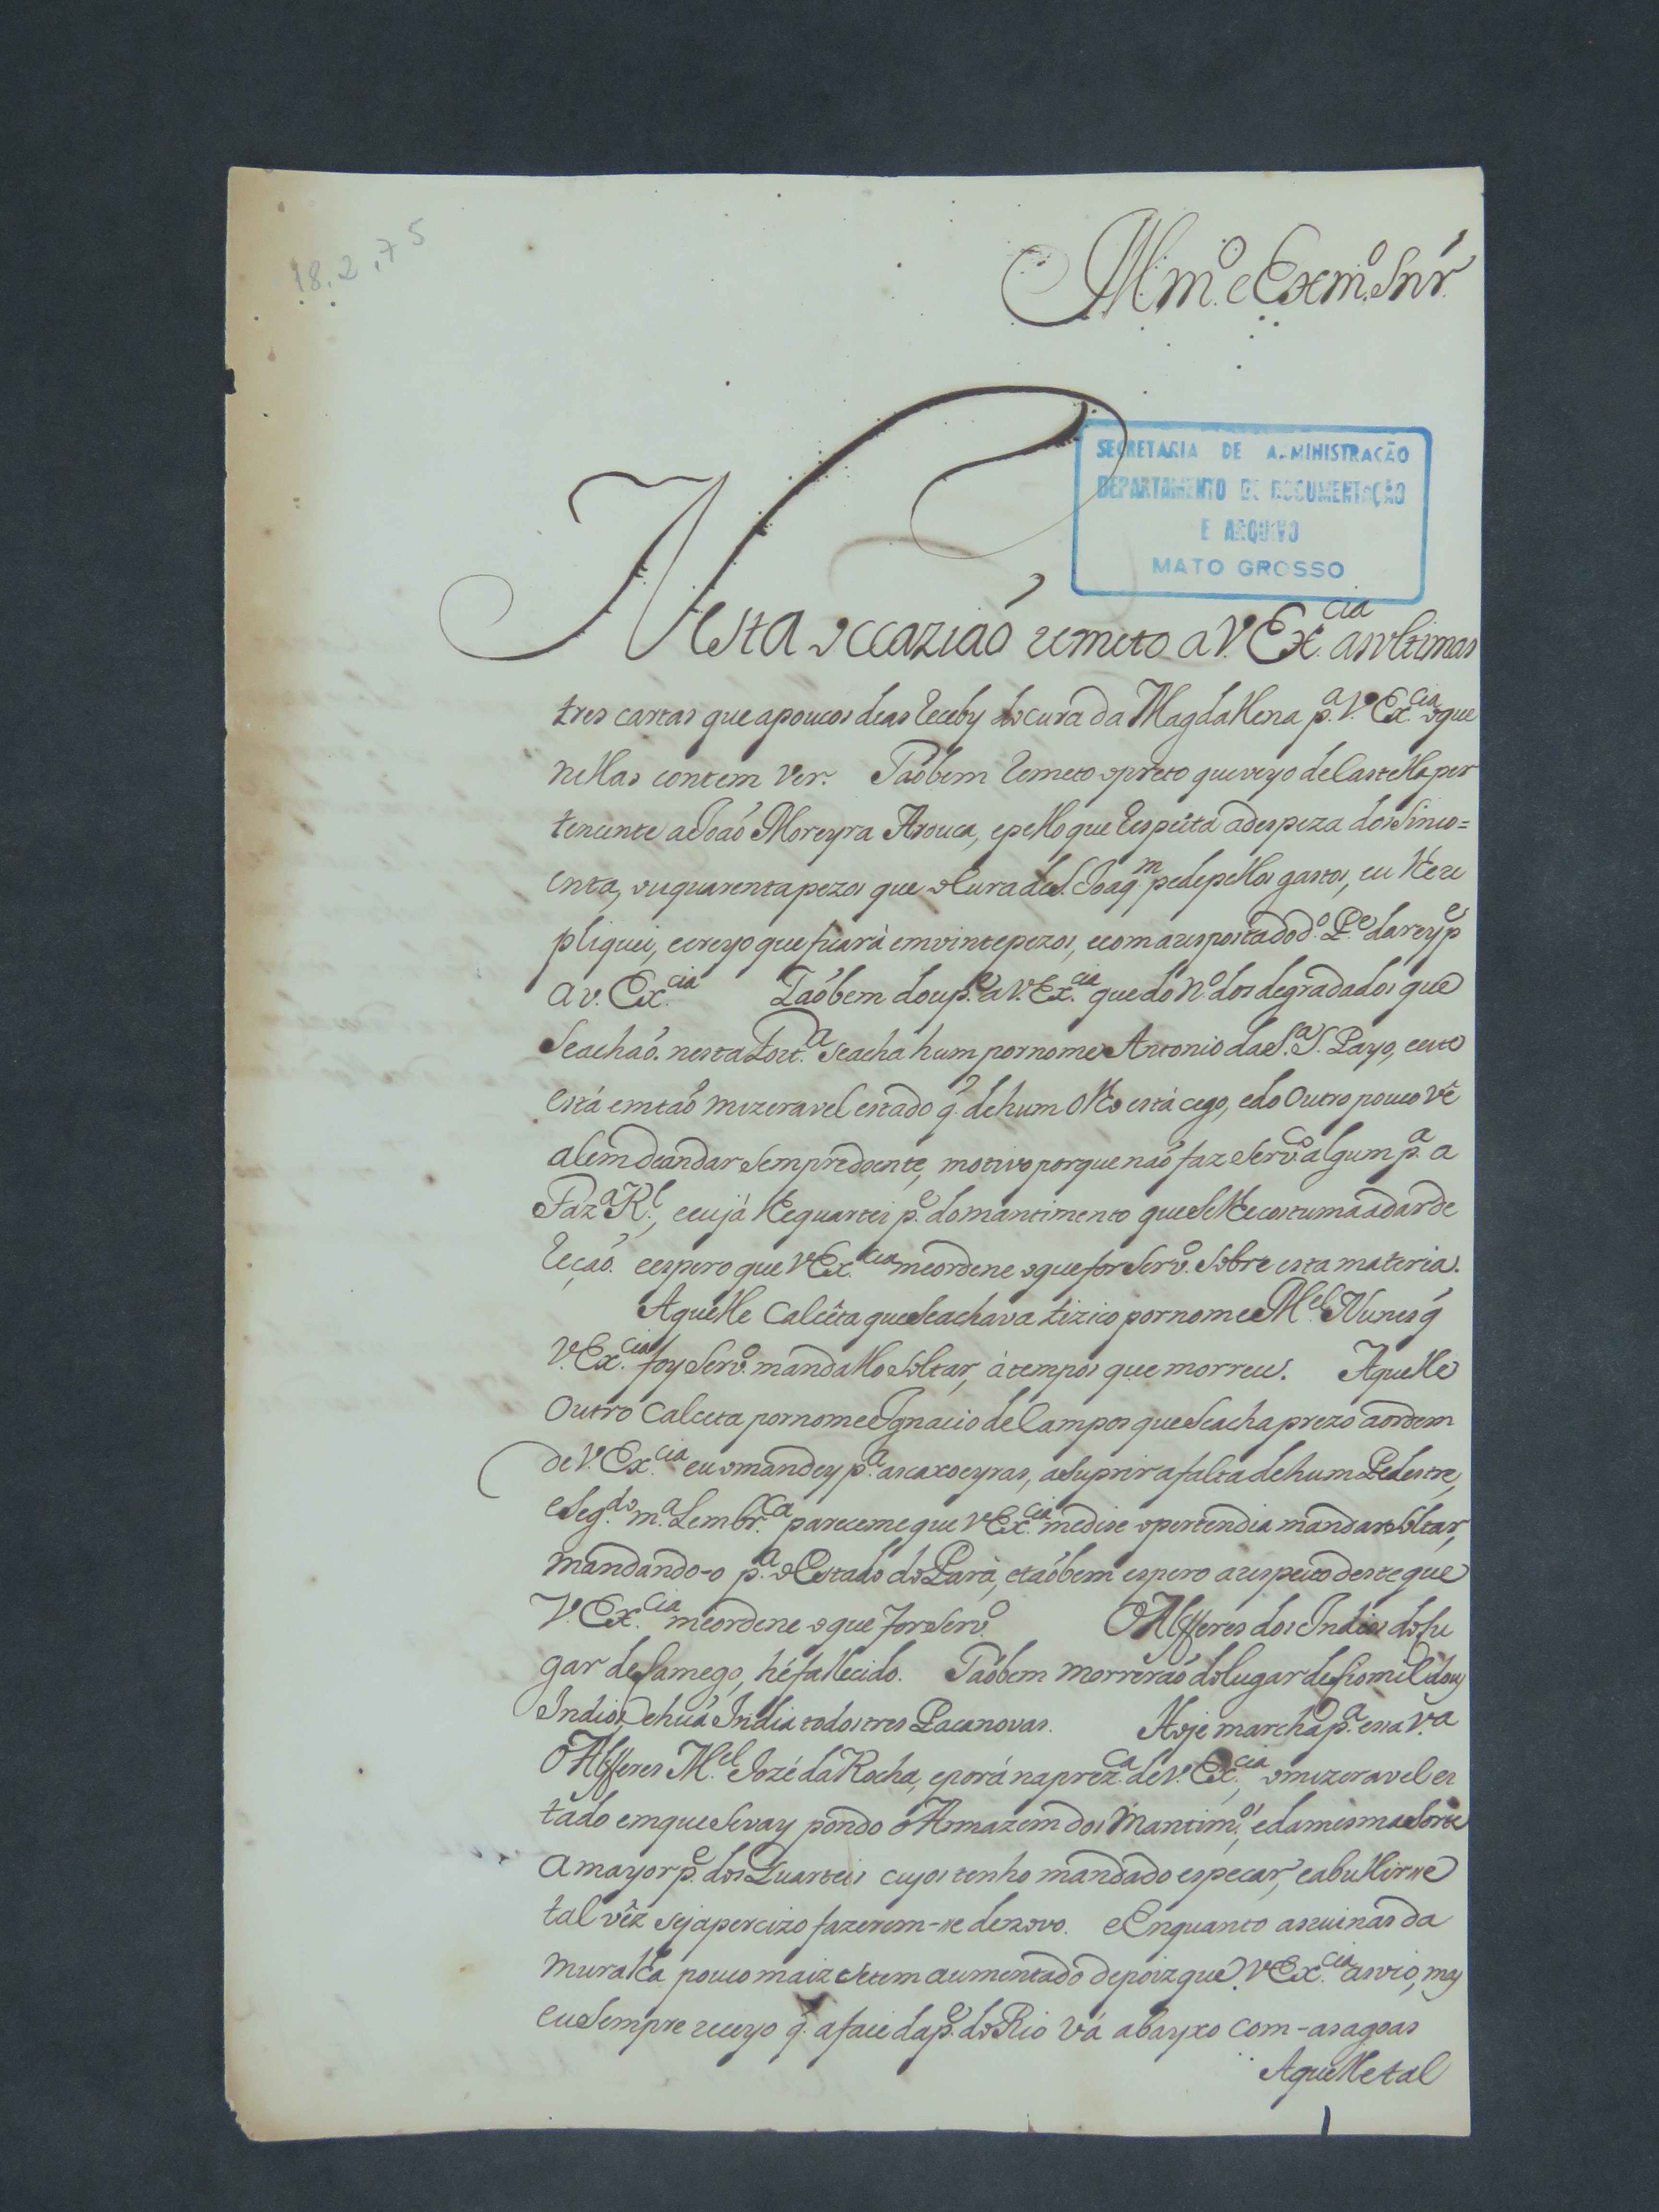 18.2.75
Illm.º e Exm.º Snr.
SECRETARIA DE ADMINISTRAÇÃO
DEPARTAMENTO DE DOCUMENTAÇÃO
E ARQUIVO
MATO GROSSO
Nesta occaziaõ remeto a V. Ex.cia as ultimas
tres cartas que a poucos dias receby do cura da Magdalhena p.ª V. Ex.cia o que
nellas contem ver. Taõbem remeto o preto que veyo de Castella per
tencente a Joaõ Moreyra Arouca, e pello que respeita a despeza dos Sinco=
enta, ou quarenta pezos que o Cura de S. Joaq.m pede pellos gastos, eu lhe re
pliquei, e creyo que ficará em vinte pezos, e com a resposta do d.º P.e darey p.e
a V. Ex.cia Taõbem dou p.e a V. Ex.cia que do N.º dos degradados que
se achaõ nesta Fort.ª se acha hum por nome Antonio da S.ª S. Payo, e este
está em taõ mizeravel estado q̃ de hum olho está cego, e do outro pouco vê
alem de andar sempre doente, motivo porque naõ faz serv.º algum p.ª a
Faz.ª R.l, e eu já lhe quartei p.e do mantimento que se lhe costuma a dar de
reçaõ. e espero que V. Ex.cia me ordene o que for serv.º sobre esta materia.
Aquelle Calcêta que se achava tizico por nome M.el Nunes q̃
V. Ex.cia foy serv.º mandallo soltar, à tempos que morreu. Aquelle
outro Calceta por nome Ignacio de Campos que se acha prezo a ordem
de V. Ex.cia eu o mandey p.ª as caxoeyras, a suprir a falta de hum Pedestre,
e seg.do m.ª Lembr.ca pareceme que V. Ex.cia me dise o pertendia mandar soltar,
mandando-o p.ª o Estado do Parà, e taõbem espero a respeito deste que
V. Ex.cia me ordene o que for serv.º O Alfferes dos Indios do lu
gar de Lamego, hé fallecido. Taõbem morreraõ do lugar de Leomil dous
Indios, e huã India todos tres Pacanovas. Hoje marcha p.ª essa V.ª
O Alfferes M.el Jozé da Rocha, e porá na prez.ca de V. Ex.cia, o mizeravel es
tado em que se vay pondo o Armazem dos Mantim.os, e da mesma sorte
a mayor p.e dos Quarteis cuyos tenho mandado especar, e a bullirse
tal vêz seja percizo fazerem-se de novo. e Enquanto as ruinas da
muralha pouco maiz se tem aumentado depoiz que V. Ex.cia as vio, mas
eu sempre receyo q̃ a face da p.e do Rio vá abayxo com-as agoas
Aquelle tal